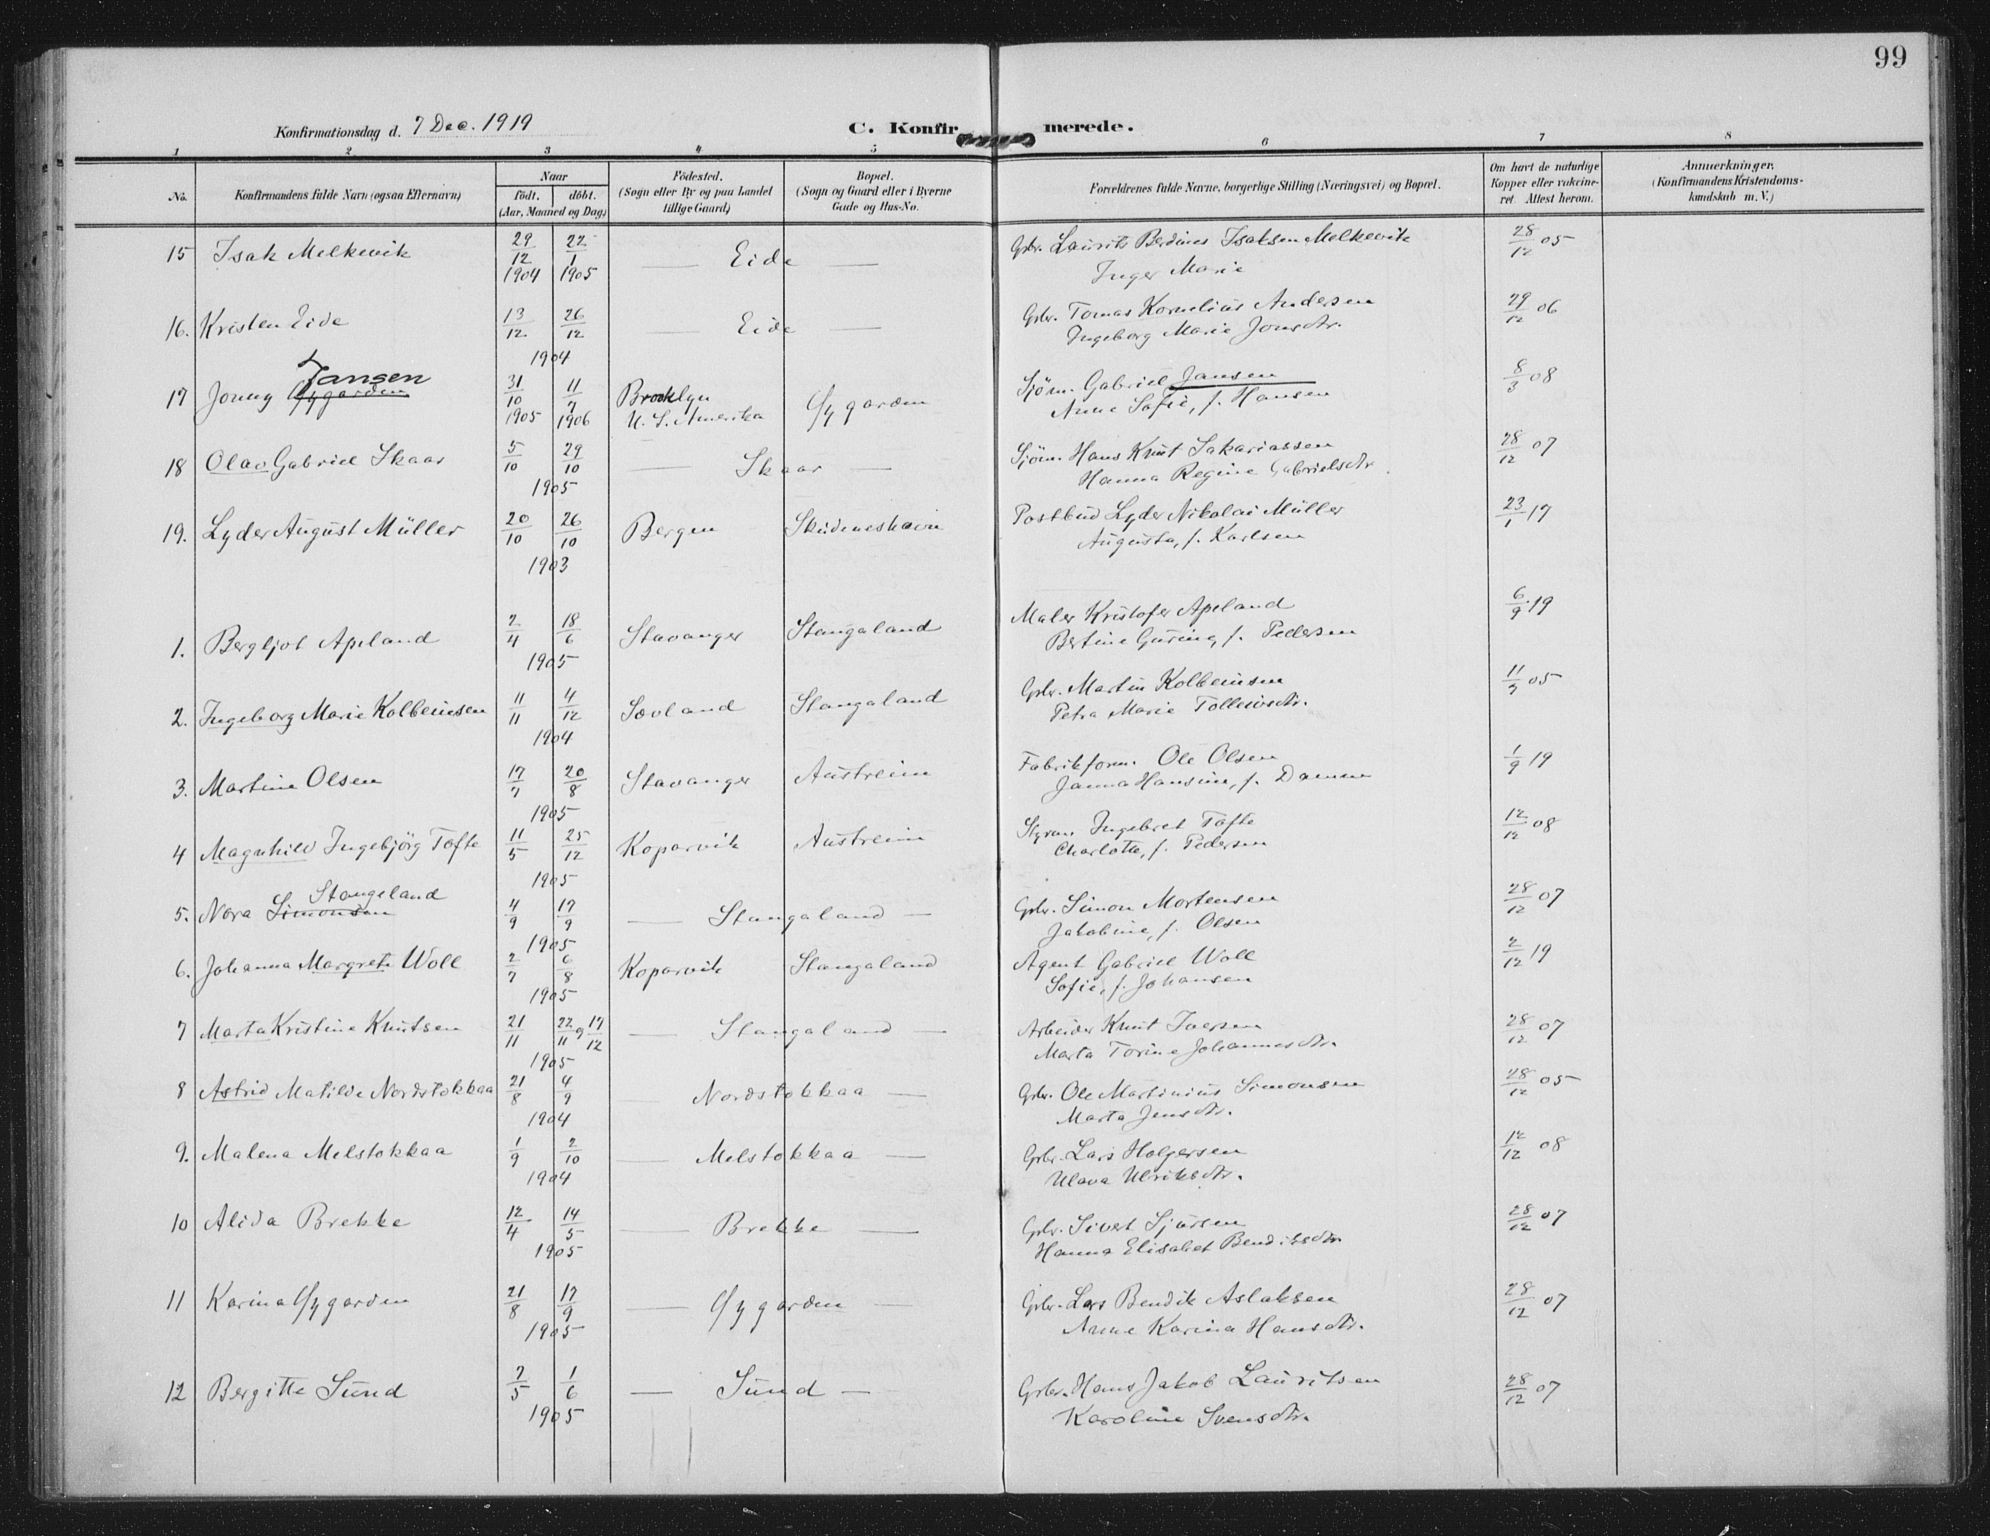 99
Konfirmationsdag d. 7 Dec. 1919 C. Konfirmerede.
1 2 3 4 5 6 7 8
No. Konfirmandens fulde Navn (ogsaa Efternavn) Naar født. døbt. (Aar, Maaned og Dag) Fødested. (Sogn eller By og paa Landet tillige Gaard) Bopæl. (Sogn og Gaard eller i Byerne Gade og Hus-No. Forældrenes fulde Navne, borgerlige Stilling (Næringsvei) og Bopæl. Om havt de naturlige Kopper eller vaccineret. Attest herom. Anmærkninger. (Konfirmandens Kristendomskundskab m. V.)
15 Isak Melkevik 29/12 1904 22/1 1905 — Eide — Gbr. Laurits Berdines Isaksen Melkevik 28/12 05
Inger Marie
16. Kristen Eide 13/12 26/12 — Eide — Gbr. Tomas Kornelius Andersen 29/12 06
1904 Ingeborg Marie Jonsdtr.
17 Jonny Sygarden Jansen 31/10 1905 11/7 1906 Brooklyn Sygarden Sjøm. Gabriel Jansen 8/3 08
U. S. Amerika Anne Sofie, f. Hansen
18 Olav Gabriel Skaar 5/10 29/10 — Skaar — Sjøm. Hans Knut Sakariassen 28/12 07
1905 Hanna Regine Gabrielsdtr.
19. Lyder August Müller 20/10 26/10 Bergen Skudeneshavn Postbud Lyder Nikolai Müller 23/1 17
1903 Augusta, f. Karlsen
1. Bergljot Apeland 2/4 18/6 Stavanger Stangaland Maler Kristofer Apeland 6/9 19
1905 Bertine Guring, f. Pedersen
2. Ingeborg Marie Kolbeinsen 11/11 4/12 Sævland Stangaland Gbr. Martin Kolbeinsen 11/7 05
1904 Petra Marie Tolleivsdtr.
3. Martine Olsen 17/7 20/8 Stavanger Austreim Fabrikform. Ole Olsen 1/9 19
1905 Janna Hansine, f. Damm
4 Magnhild Ingebjörg Tofte 11/5 25/12 Kopervik Austreim Styrm. Ingebret Tofte 12/12 08
1905 Charlotte, f. Pedersen
5. Nora Simonsen Stangeland 4/9 17/9 — Stangaland — Gbr. Simon Mortensen 28/12 07
1905 Jakobine, f. Olsen
6. Johanna Margrete Woll 2/7 6/8 Kopervik Stangaland Agent Gabriel Woll 2/12 19
1905 Sofie, f. Johansen
7 Marta Kristine Knutsen 21/11 22/11 og 17/12 — Stangaland — Arbeider Knut Iversen 28/12 07
1905 Marta Torine Johannesdtr.
8 Astrid Matilde Nordstokkaa 21/8 4/9 — Nordstokkaa — Gbr. Ole Martinius Simonsen 28/12 05
1904 Marta Jensdtr.
9. Malena Melstokkaa 1/9 2/10 — Melstokkaa — Gbr. Lars Holgersen 12/12 08
1904 Olava Ulriksdtr.
10 Alida Brekke 12/4 14/5 — Brekke — Gbr. Sivert Sjursen 28/12 07
1905 Hanna Elisabet Bendiksdtr.
11 Karina Sygarden 21/8 17/9 — Sygarden — Gbr. Lars Bendik Aslaksen 28/12 07
1905 Anne Karina Hansdtr.
12 Bergitte Sund 7/5 1/6 — Sund — Gbr. Hans Jakob Lauritsen 28/12 07
1905 Karoline Svensdtr.